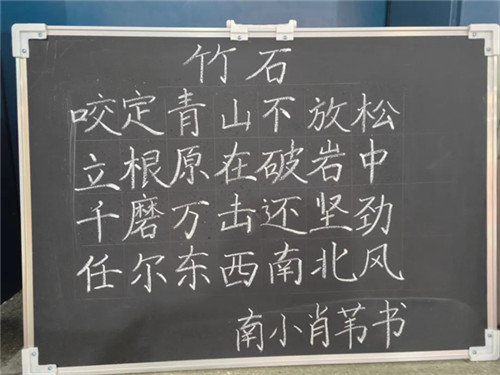 竹石
咬定青山不放松
立根原在破岩中
千磨万击还坚劲
任尔东西南北风
南小肖苇书